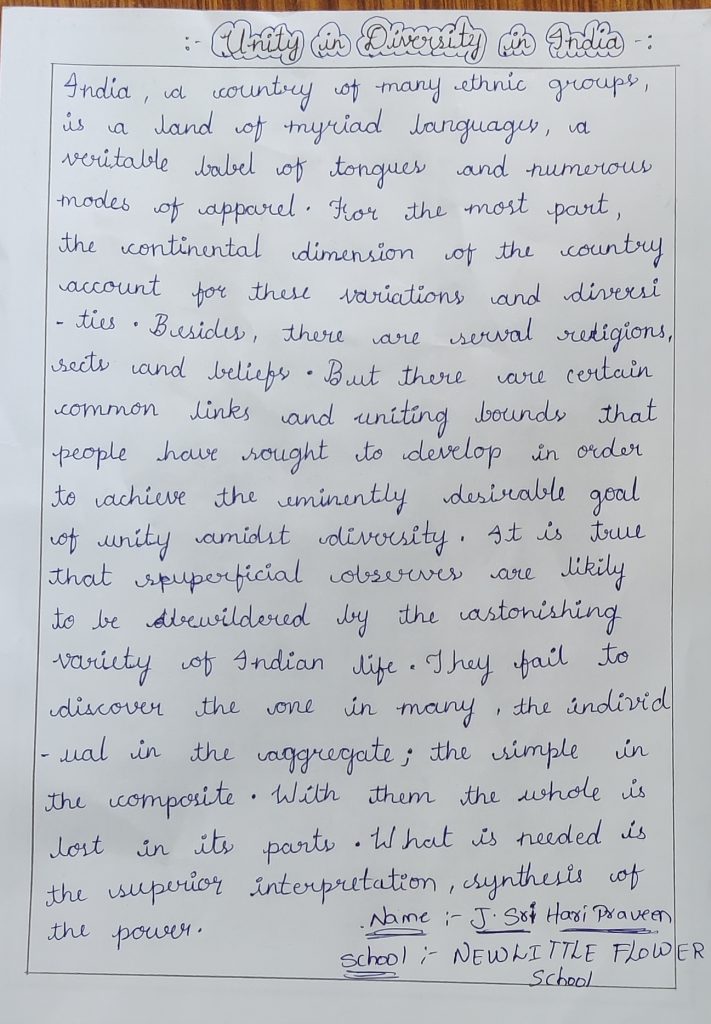 :- Unity in Diversity in India -:
India, a country of many ethnic groups,
is a land of myriad languages, a
veritable babel of tongues and numerous
modes of apparel. For the most part,
the continental dimension of the country
account for these variations and diversi
- ties. Besides, there are serval religions,
sects and beliefs. But there are certain
common links and uniting bounds that
people have sought to develop in order
to achieve the eminently desirable goal
of unity amidst diversity. It is true
that spuperficial observes are likily
to be bewildered by the astonishing
variety of Indian life. They fail to
discover the one in many, the individ
- ual in the aggregate; the simple in
the composite. With them the whole is
lost in its parts. What is needed is
the superior interpretation, synthesis of
the power.
Name :- J. Sri Hari Praveen
school :- NEW LITTLE FLOWER
School